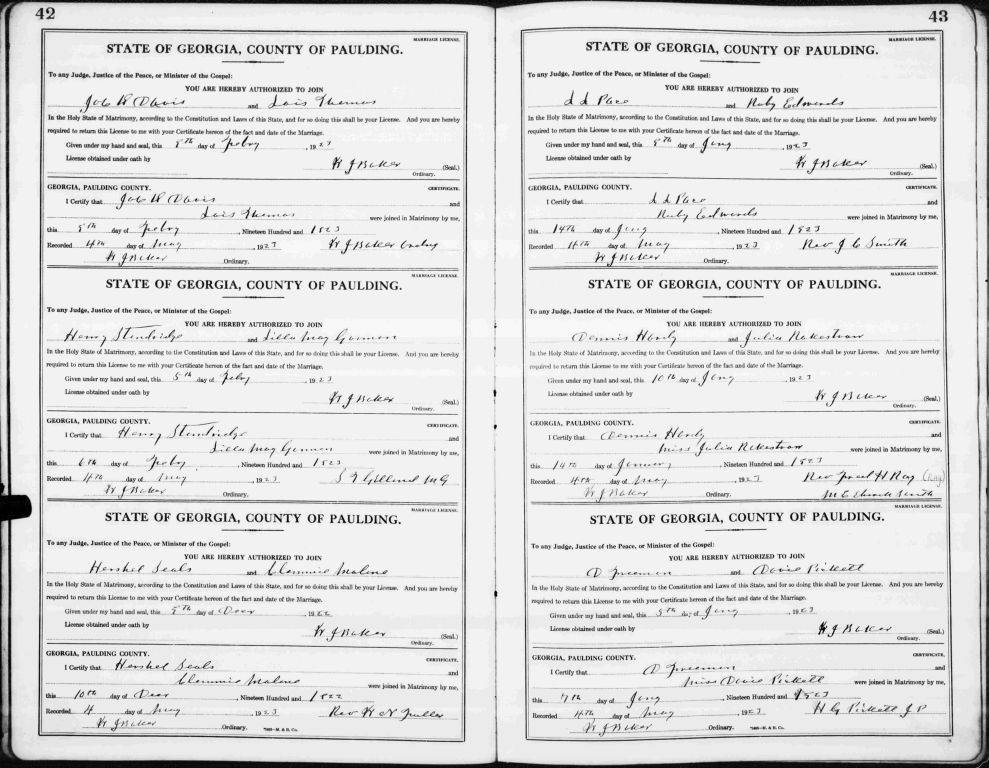 42
MARRIAGE LICENSE.
STATE OF GEORGIA, COUNTY OF PAULDING.
To any Judge, Justice of the Peace, or Minister of the Gospel:
YOU ARE HEREBY AUTHORIZED TO JOIN
Davis and Lois Thomas
In the Holy State of Matrimony, according to the Constitution and Laws of this State, and for so doing this shall be your License. And you are hereby
required to return this License to me with your Certificate hereon of the fact and date of the Marriage.
Given under my hand and seal, this 8th day of Feby , 1923
License obtained under oath by
W J Baker (Seal.)
Ordinary.
GEORGIA, PAULDING COUNTY. CERTIFICATE.
I Certify that Davis and
Lois Thomas were joined in Matrimony by me,
this 8th day of Feby , Nineteen Hundred and 1923
Recorded 4th day of May , 1923 W J Baker Ordny
W J Baker Ordinary.
MARRIAGE LICENSE.
STATE OF GEORGIA, COUNTY OF PAULDING.
To any Judge, Justice of the Peace, or Minister of the Gospel:
YOU ARE HEREBY AUTHORIZED TO JOIN
Henry Standridge and Lilla May
In the Holy State of Matrimony, according to the Constitution and Laws of this State, and for so doing this shall be your License. And you are hereby
required to return this License to me with your Certificate hereon of the fact and date of the Marriage.
Given under my hand and seal, this 5th day of Feby , 1923
License obtained under oath by
W J Baker (Seal.)
Ordinary.
GEORGIA, PAULDING COUNTY. CERTIFICATE.
I Certify that Henry Standridge and
Lilla May were joined in Matrimony by me,
this 6th day of Feby , Nineteen Hundred and 1923
Recorded 4th day of May , 1923 M G
W J Baker Ordinary.
MARRIAGE LICENSE.
STATE OF GEORGIA, COUNTY OF PAULDING.
To any Judge, Justice of the Peace, or Minister of the Gospel:
YOU ARE HEREBY AUTHORIZED TO JOIN
Hershel Seals and Clemmie Malone
In the Holy State of Matrimony, according to the Constitution and Laws of this State, and for so doing this shall be your License. And you are hereby
required to return this License to me with your Certificate hereon of the fact and date of the Marriage.
Given under my hand and seal, this 9th day of Decr 1922
License obtained under oath by
W J Baker (Seal.)
Ordinary.
GEORGIA, PAULDING COUNTY. CERTIFICATE.
I Certify that Hershel Seals and
Clemmie Malone were joined in Matrimony by me,
this 10th day of Decr , Nineteen Hundred and 1922
Recorded 4 day of May , 1923 Rev W N Fuller
W J Baker Ordinary.
43
MARRIAGE LICENSE.
STATE OF GEORGIA, COUNTY OF PAULDING.
To any Judge, Justice of the Peace, or Minister of the Gospel:
YOU ARE HEREBY AUTHORIZED TO JOIN
Pace and Ruby Edwards
In the Holy State of Matrimony, according to the Constitution and Laws of this State, and for so doing this shall be your License. And you are hereby
required to return this License to me with your Certificate hereon of the fact and date of the Marriage.
Given under my hand and seal, this 8th day of Jany , 1923
License obtained under oath by
W J Baker (Seal.)
Ordinary.
GEORGIA, PAULDING COUNTY. CERTIFICATE.
I Certify that Pace and
Ruby Edwards were joined in Matrimony by me,
this 14th day of Jany , Nineteen Hundred and 1923
Recorded 4th day of May , 1923 Rev J C Smith
W J Baker Ordinary.
MARRIAGE LICENSE.
STATE OF GEORGIA, COUNTY OF PAULDING.
To any Judge, Justice of the Peace, or Minister of the Gospel:
YOU ARE HEREBY AUTHORIZED TO JOIN
Dennis Hardy and Julia Rakestraw
In the Holy State of Matrimony, according to the Constitution and Laws of this State, and for so doing this shall be your License. And you are hereby
required to return this License to me with your Certificate hereon of the fact and date of the Marriage.
Given under my hand and seal, this 10th day of Jany , 1923
License obtained under oath by
W J Baker (Seal.)
Ordinary.
GEORGIA, PAULDING COUNTY. CERTIFICATE.
I Certify that Dennis Hardy and
Miss Julia Rakestraw were joined in Matrimony by me,
this 14th day of January , Nineteen Hundred and 1923
Recorded 4th day of May , 1923 Rev H Ray (Ray)
W J Baker Ordinary. M E Church South
MARRIAGE LICENSE.
STATE OF GEORGIA, COUNTY OF PAULDING.
To any Judge, Justice of the Peace, or Minister of the Gospel:
YOU ARE HEREBY AUTHORIZED TO JOIN
O Freeman and Dovie Pickett
In the Holy State of Matrimony, according to the Constitution and Laws of this State, and for so doing this shall be your License. And you are hereby
required to return this License to me with your Certificate hereon of the fact and date of the Marriage.
Given under my hand and seal, this day of Jany , 1923
License obtained under oath by
W J Baker (Seal.)
Ordinary.
GEORGIA, PAULDING COUNTY. CERTIFICATE.
I Certify that O Freeman and
Miss Dovie Pickett were joined in Matrimony by me,
this 7th day of Jany , Nineteen Hundred and 1923
Recorded 4th day of May , 1923 H G Pickett J P
W J Baker Ordinary.